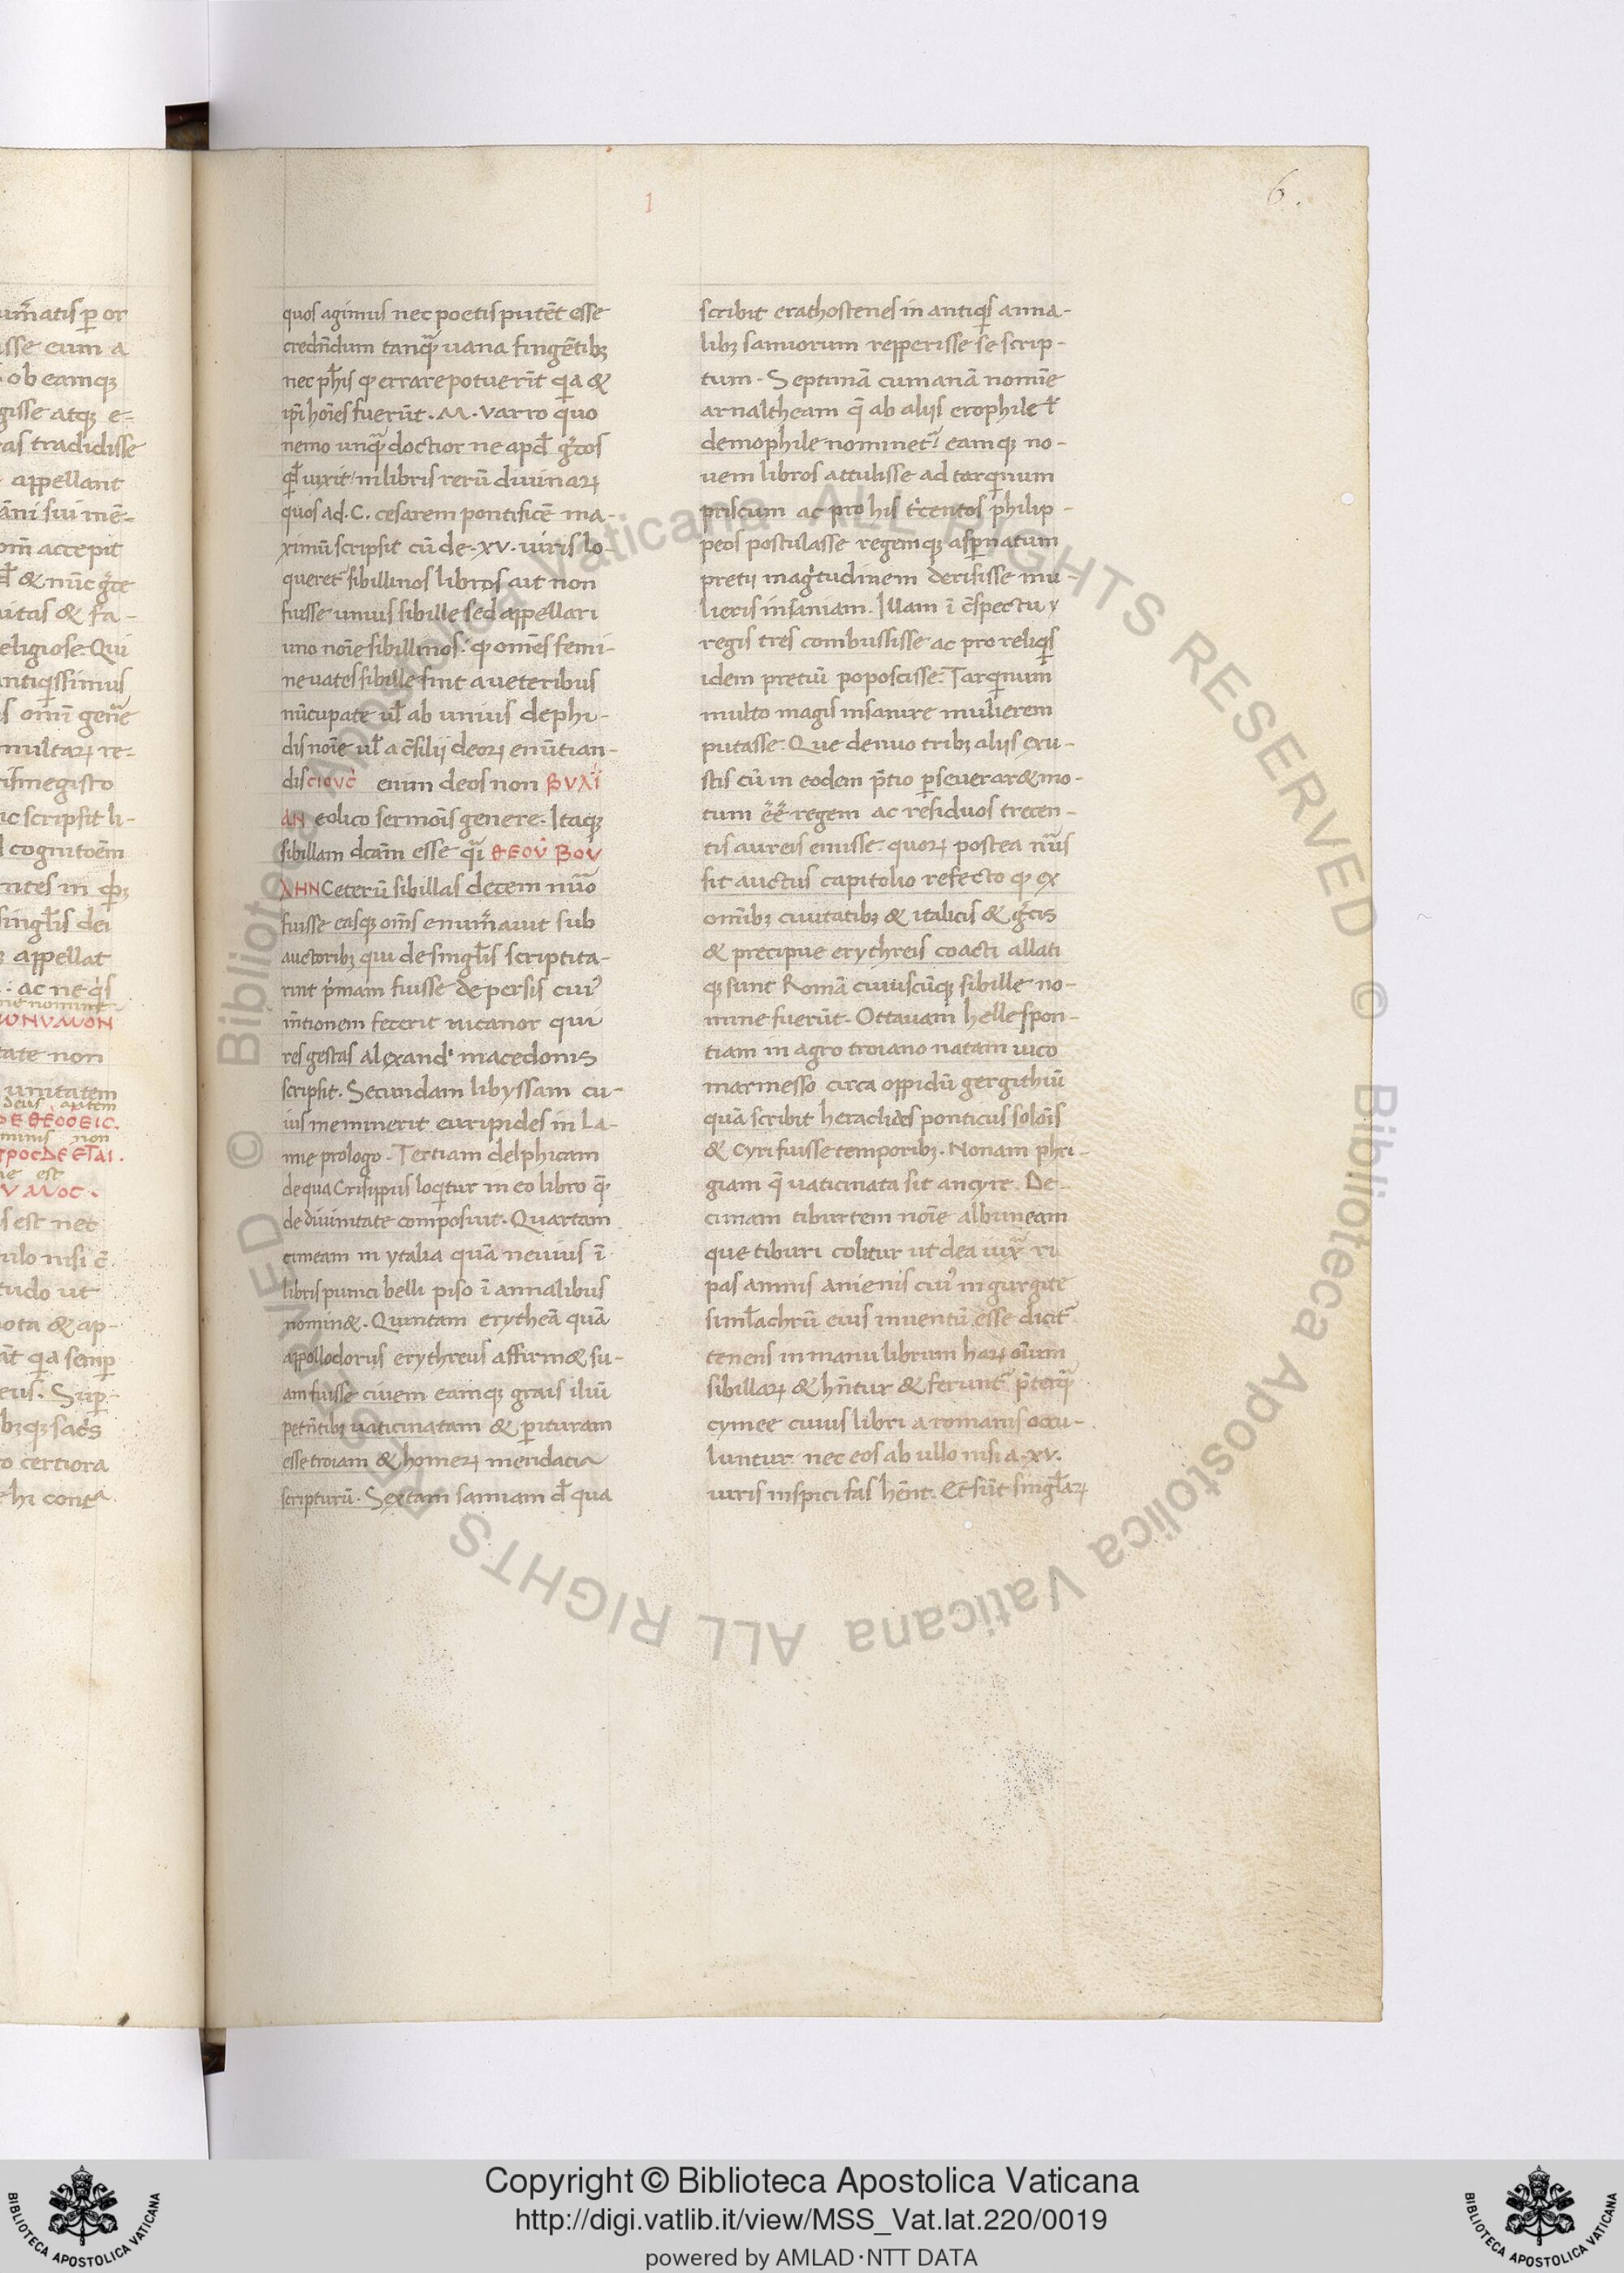 6.
1
um̃atis ꝑ or
isse eum a
ob eamqꝫ
gisse atqꝫ e-
as tradidisse
appellant
āni sui mē-
om̄ accepit
& nūc
uitas & fa-
eligiose. Qui
antiqissimus
s omī
multaꝝ re-
ismegisto
ic scripsit li-
cognitoēm
ntes in
singl̄is dei
appellat
: ac ne
ne nomine
ate non
unitatem
deus autem
non
est
s est nec
ulo nisi
tudo ut
ota & ap-
qa semꝑ
eus. Suꝑ-
o certiora
hi cont
quos agimus nec poetis putēt esse
credn̄dum tanq̄ uana fingētibꝫ
nec ph̄is ꝙ errare potuerīt qa &
ip̄i hoīes fuerūt. M. Varro quo
nemo unq̄ doctior ne apđ gͣcos
qđ uixit in libris rerū diuinaꝝ
quos ad. C. cesarem pontificē ma-
ximū scripsit cū de. xv. uiris lo-
queret̄ sibillinos libros ait non
fuisse unius sibille sed appellari
uno noīe sibillinos: ꝙ om̄es femi-
ne uates sibille sint a ueteribus
nūcupate ul̄ ab unius delphi-
dis noīe ul̄ a c̄silij deoꝝ enūtian-
dis CIOVC enim deos non BVΛI
AN eolico sermoīs genere. Itaqꝫ
sibillam dcām esse q̄i ΘΕΟΥ ΒΟΥ
ΛΗΝ Ceterū sibillas decem nūo
fuisse easqꝫ om̄s enum̄auit sub
auctoribꝫ qui de singl̄is scriptita-
rint p̍mam fuisse de persis cuiꝰ
m̄tionem fecerit nicanor qui
res gestas alexand' macedonis
scripsit. Secundam libyssam cu-
ius meminerit euripides in La-
mie prologo. Tertiam delphicam
de qua Crisippus loqitur in eo libro q̄
de diuinitate composuit. Quartam
cimeam in ytalia quā neuius ī
libris punici belli piso ī annalibus
nomin&. Quintam erytheā quā
appollodorus erythreus affirm& su-
am fuisse ciuem eamqꝫ grais iliū
petn̄tibꝫ uaticinatam & ꝑituram
esse troiam & homeꝝ mendacia
scripturū. Sextam samiam đ qua
scribit erathostenes in antiqis anna-
libꝫ samiorum repperisse se scrip-
tum. Septimā cumanā nomīe
amaltheam q̄ ab alijs erophile ł
demophile nominet̄ eamqꝫ no-
uem libros attulisse ad tarqinum
priscum ac pro his t̍centos philip-
peos postulasse regemqꝫ asꝑnatum
pretij mag̍tudinem derisisse mu-
lieris insaniam. Illam ī c̄spectu
regis tres combussisse ac pro reliqis
idem pretiū poposcisse. Tarqinum
multo magis insanire mulierem
putasse. Que denuo tribꝫ alijs exu-
stis cū in eodem p̄tio ꝑseuerar& mo-
tum eē regem ac residuos trecen-
tis aureis emisse. quoꝝ postea nūs
sit auctus capitolio refecto ꝙ ex
omībꝫ ciuitatibꝫ & italicis & gͣcis
& precipue erythreis coacti allati
qꝫ sunt Romā cuiuscūqꝫ sibille no-
mine fuerūt. Ottauam hellespon-
tiam in agro troiano natam uico
marmesso circa oppidū gergithiū
quā scribit heraclides ponticus soloīs
& Cyri fuisse temporibꝫ. Nonam phri-
giam q̄ uaticinata sit ancyre. De-
cimam tiburtem noīe albuneam
que tiburi colitur ut dea iuxͣ ri
pas amnis anienis cuiꝰ in gurgite
siml̄achrū eius inuentū esse dicit̄
tenens in manu librum haꝝ oīum
sibillaꝝ & hn̄tur & ferunt̄ p̄terq̄
cymee cuius libri a romanis occu-
luntur nec eos ab ullo nisi a. xv.
uiris inspici fas hēnt. Et sūt singl̄aꝝ
© Biblioteca Apostolica Vaticana ALL RIGHTS RESERVED © Biblioteca Apostolica Vaticana ALL RIGHTS RESERVED
Copyright © Biblioteca Apostolica Vaticana
http://digi.vatlib.it/view/MSS_Vat.lat.220/0019
powered by AMLAD·NTT DATA
BIBLIOTECA APOSTOLICA VATICANA
BIBLIOTECA APOSTOLICA VATICANA